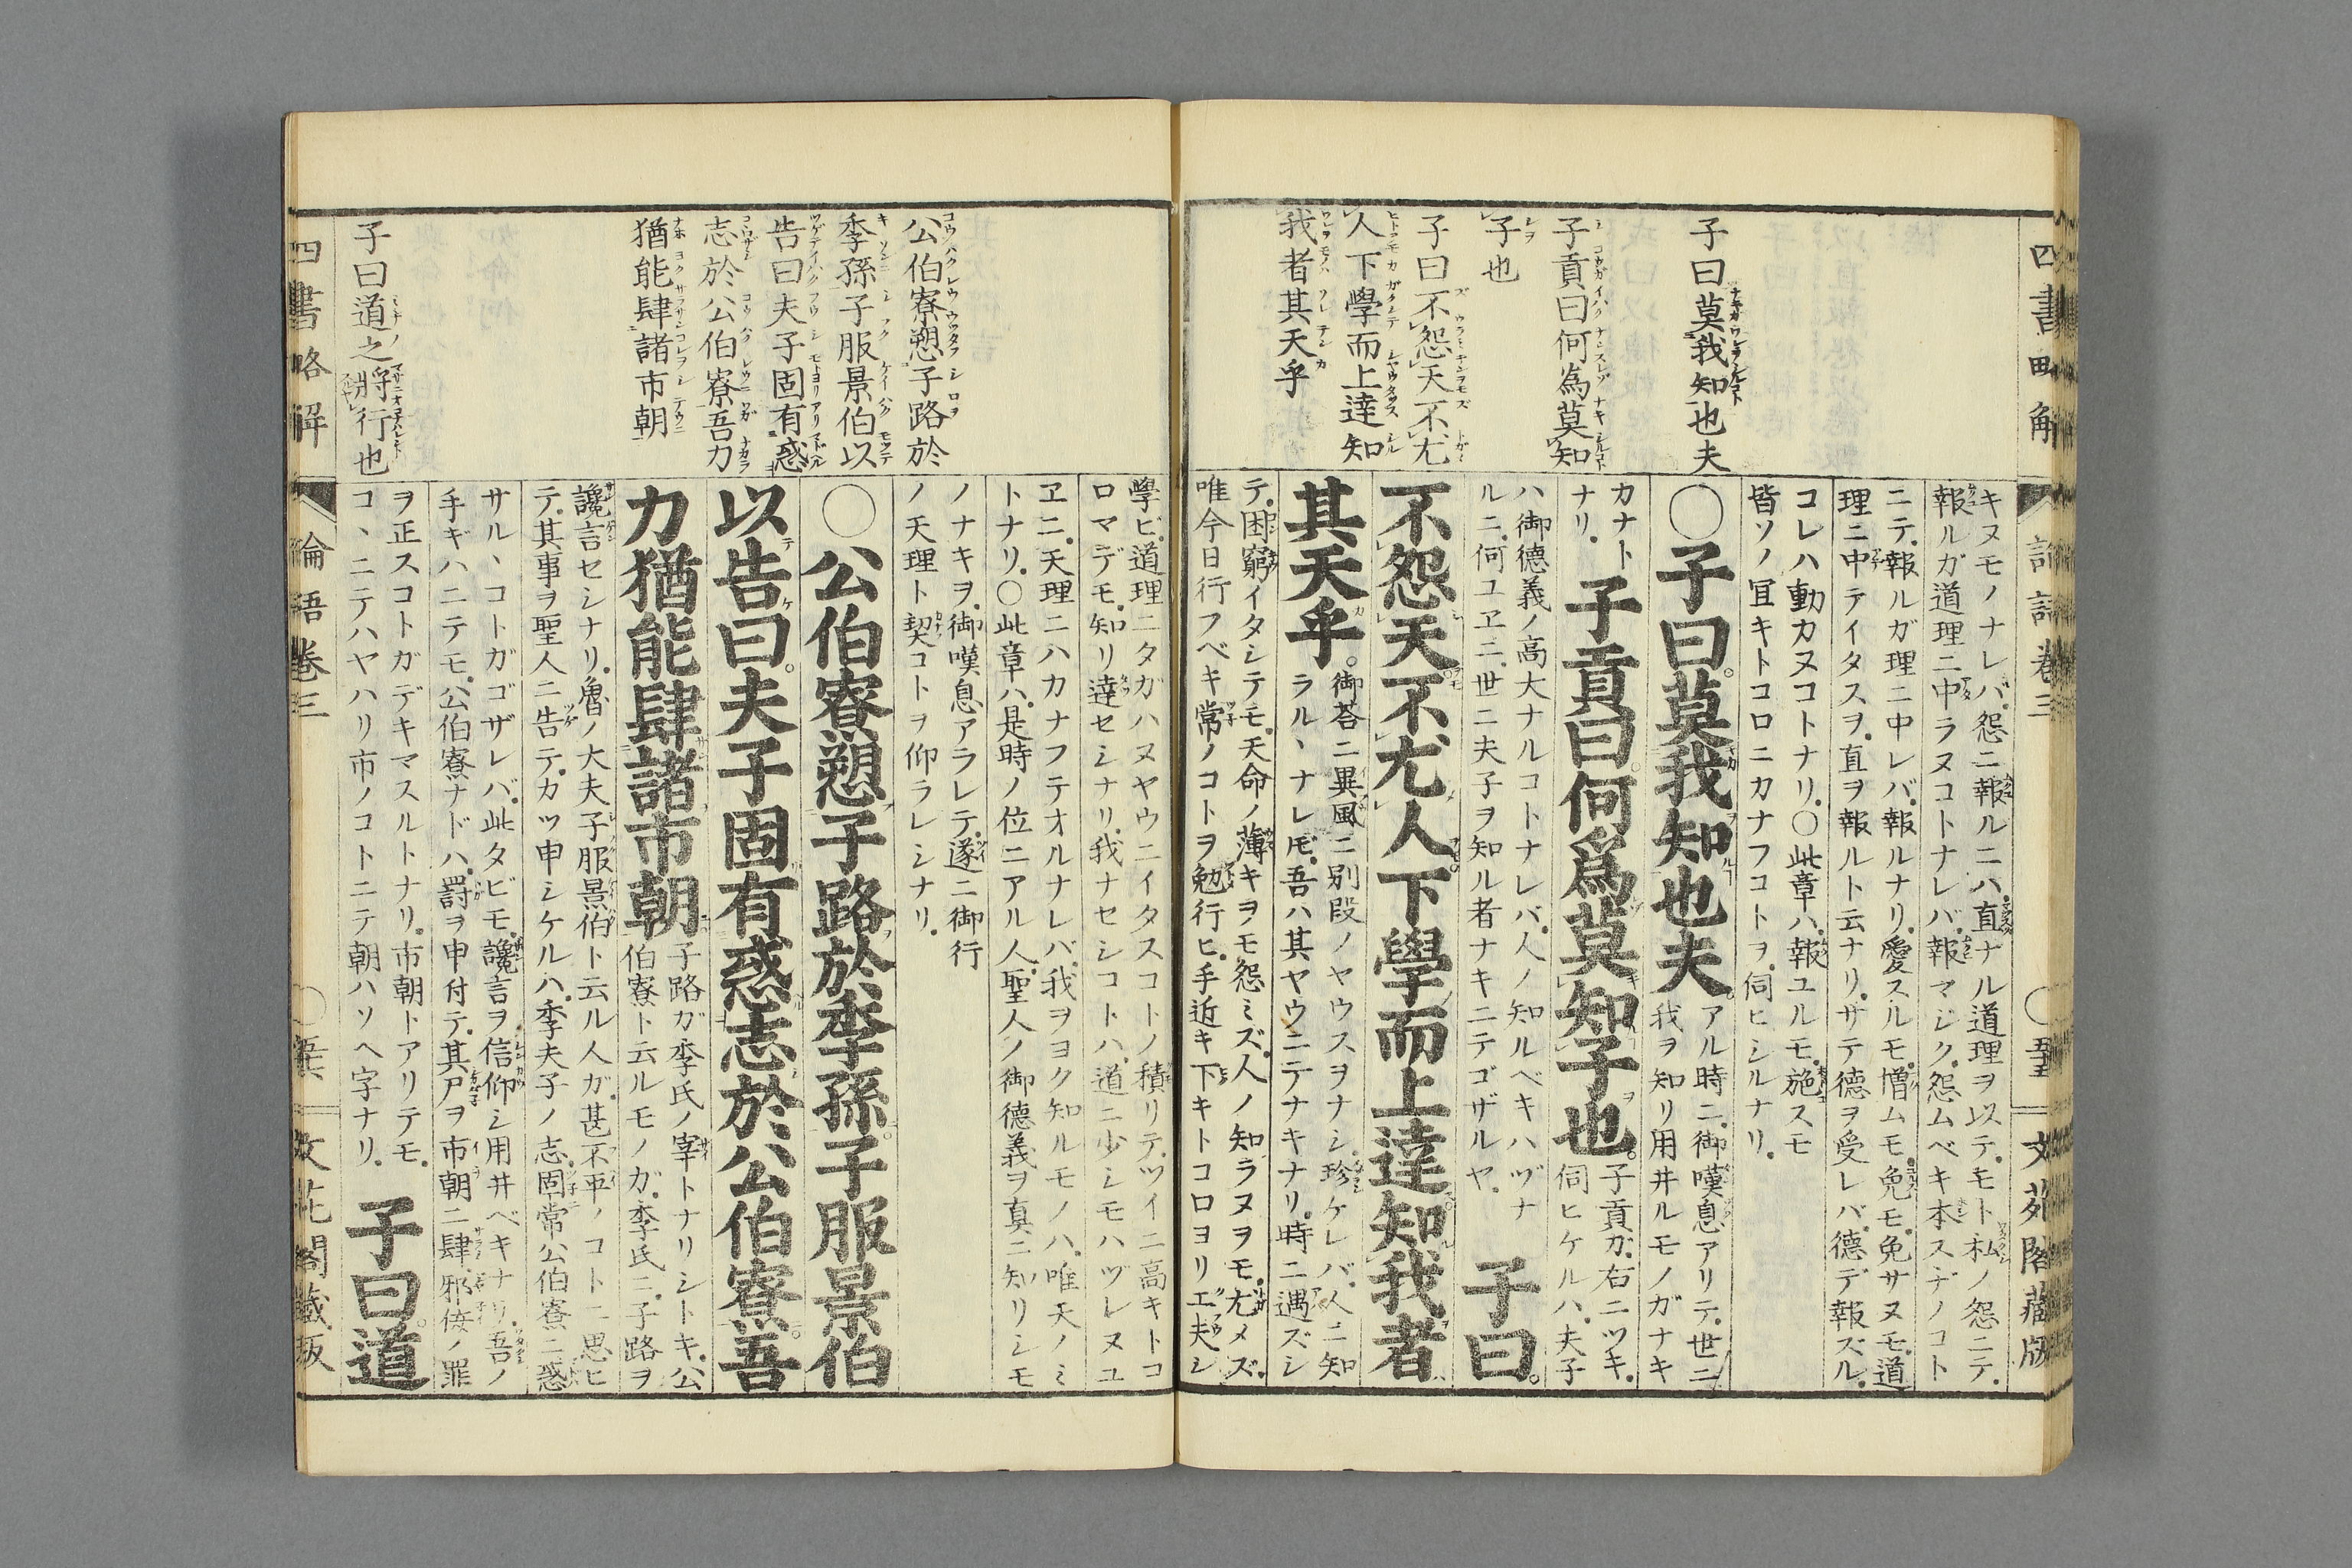 四書略解
論語卷三
文苑閣藏版
子曰莫我知也夫
子貢曰何為莫知
子也
子曰不怨天不尤
人下學而上達知
我者其天乎
キヌモノナレバ怨ニ報ルニハ直ナル道理ヲ以テモト私ノ怨ニテ
報ルガ道理ニ中ラヌコトナレバ報マジク怨ムベキ本スヂノコト
ニテ報ルガ理ニ中レバ報ルナリ愛スルモ憎ムモ免モ免サヌモ道
理ニ中テイタスヲ直ヲ報ルト云ナリサテ德ヲ受レバ德デ報ズル
コレハ動カヌコトナリ〇此章ハ報ユルモ施スモ
皆ソノ冝キトコロニカナフコトヲ伺ヒシルナリ
〇子曰莫我知也夫
アル時ニ御嘆息アリテ世ニ
我ヲ知リ用井ルモノガナキ
カナト
ナリ
子貢曰何爲莫知子也
子貢ガ右ニツキ
伺ヒケルハ夫子
ハ御德義ノ高大ナルコトナレバ人ノ知ルベキハヅナ
ルニ何ユヱニ世ニ夫子ヲ知ル者ナキニテゴザルヤ
子曰
不怨天不尤人下學而上達知我者
其天乎
御荅ニ異風ニ別段ノヤウスヲナシ珍ケレバ人ニ知
ラルヽナレ𪜈吾ハ其ヤウニテナキナリ時ニ遇ズシ
テ困窮イタシテモ天命ノ薄キヲモ怨ミズ人ノ知ラヌヲモ尤メズ
唯今日行フベキ常ノコトヲ勉行ヒ手近キ下キトコロヨリエ夫シ
公伯寮愬子路於
季孫子服景伯以
告曰夫子固有惑
志於公伯寮吾力
猶能肆諸市朝
子曰道之將行也
學ビ道理ニタガハヌヤウニイタスコトノ積リテツイニ高キトコ
ロマデモ知リ達セシナリ我ナセシコトハ道ニ少シモハヅレヌユ
ヱニ天理ニハカナフテオルナレバ我ヲヨク知ルモノハ唯天ノミ
トナリ〇此章ハ是時ノ位ニアル人聖人ノ御德義ヲ真ニ知リシモ
ノナキヲ御嘆息アラレテ遂ニ御行
ノ天理ト契コトヲ仰ラレシナリ
〇公伯寮愬子路於季孫子服景伯
以告曰夫子固有惑志於公伯寮吾
力猶能肆諸市朝
子路ガ季氏ノ宰トナリシトキ公
伯寮ト云ルモノガ季氏ニ子路ヲ
讒言セシナリ魯ノ大夫子服景伯ト云ル人ガ甚不平ノコトニ思ヒ
テ其事ヲ聖人ニ告テカツ申シケルハ季夫子ノ志固常公伯寮ニ惑
サルヽコトガゴザレバ此タビモ讒言ヲ信仰シ用井ベキナリ吾ノ
手ギハニテモ公伯寮ナドハ罸ヲ申付テ其尸ヲ市朝ニ肆邪侫ノ罪
ヲ正スコトガデキマスルトナリ市朝トアリテモ
コヽニテハヤハリ市ノコトニテ朝ハソヘ字ナリ
子曰道
四書略解
論語卷三
文苑閣藏版